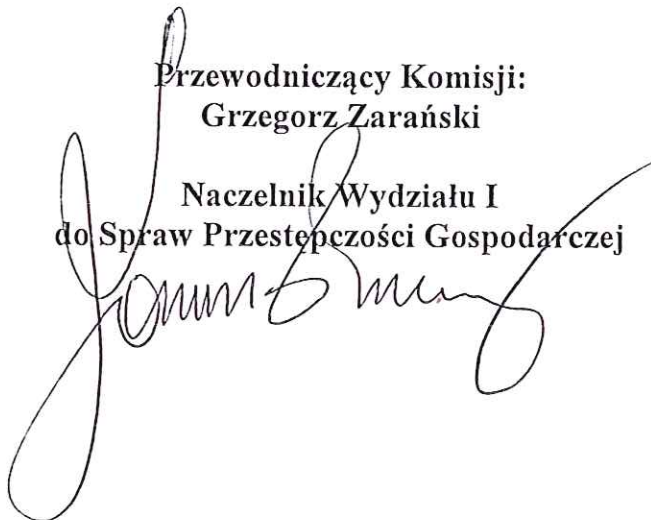 Przewodniczący Komisji:
Grzegorz Zarański
Naczelnik Wydziału I
do Spraw Przestępczości Gospodarczej